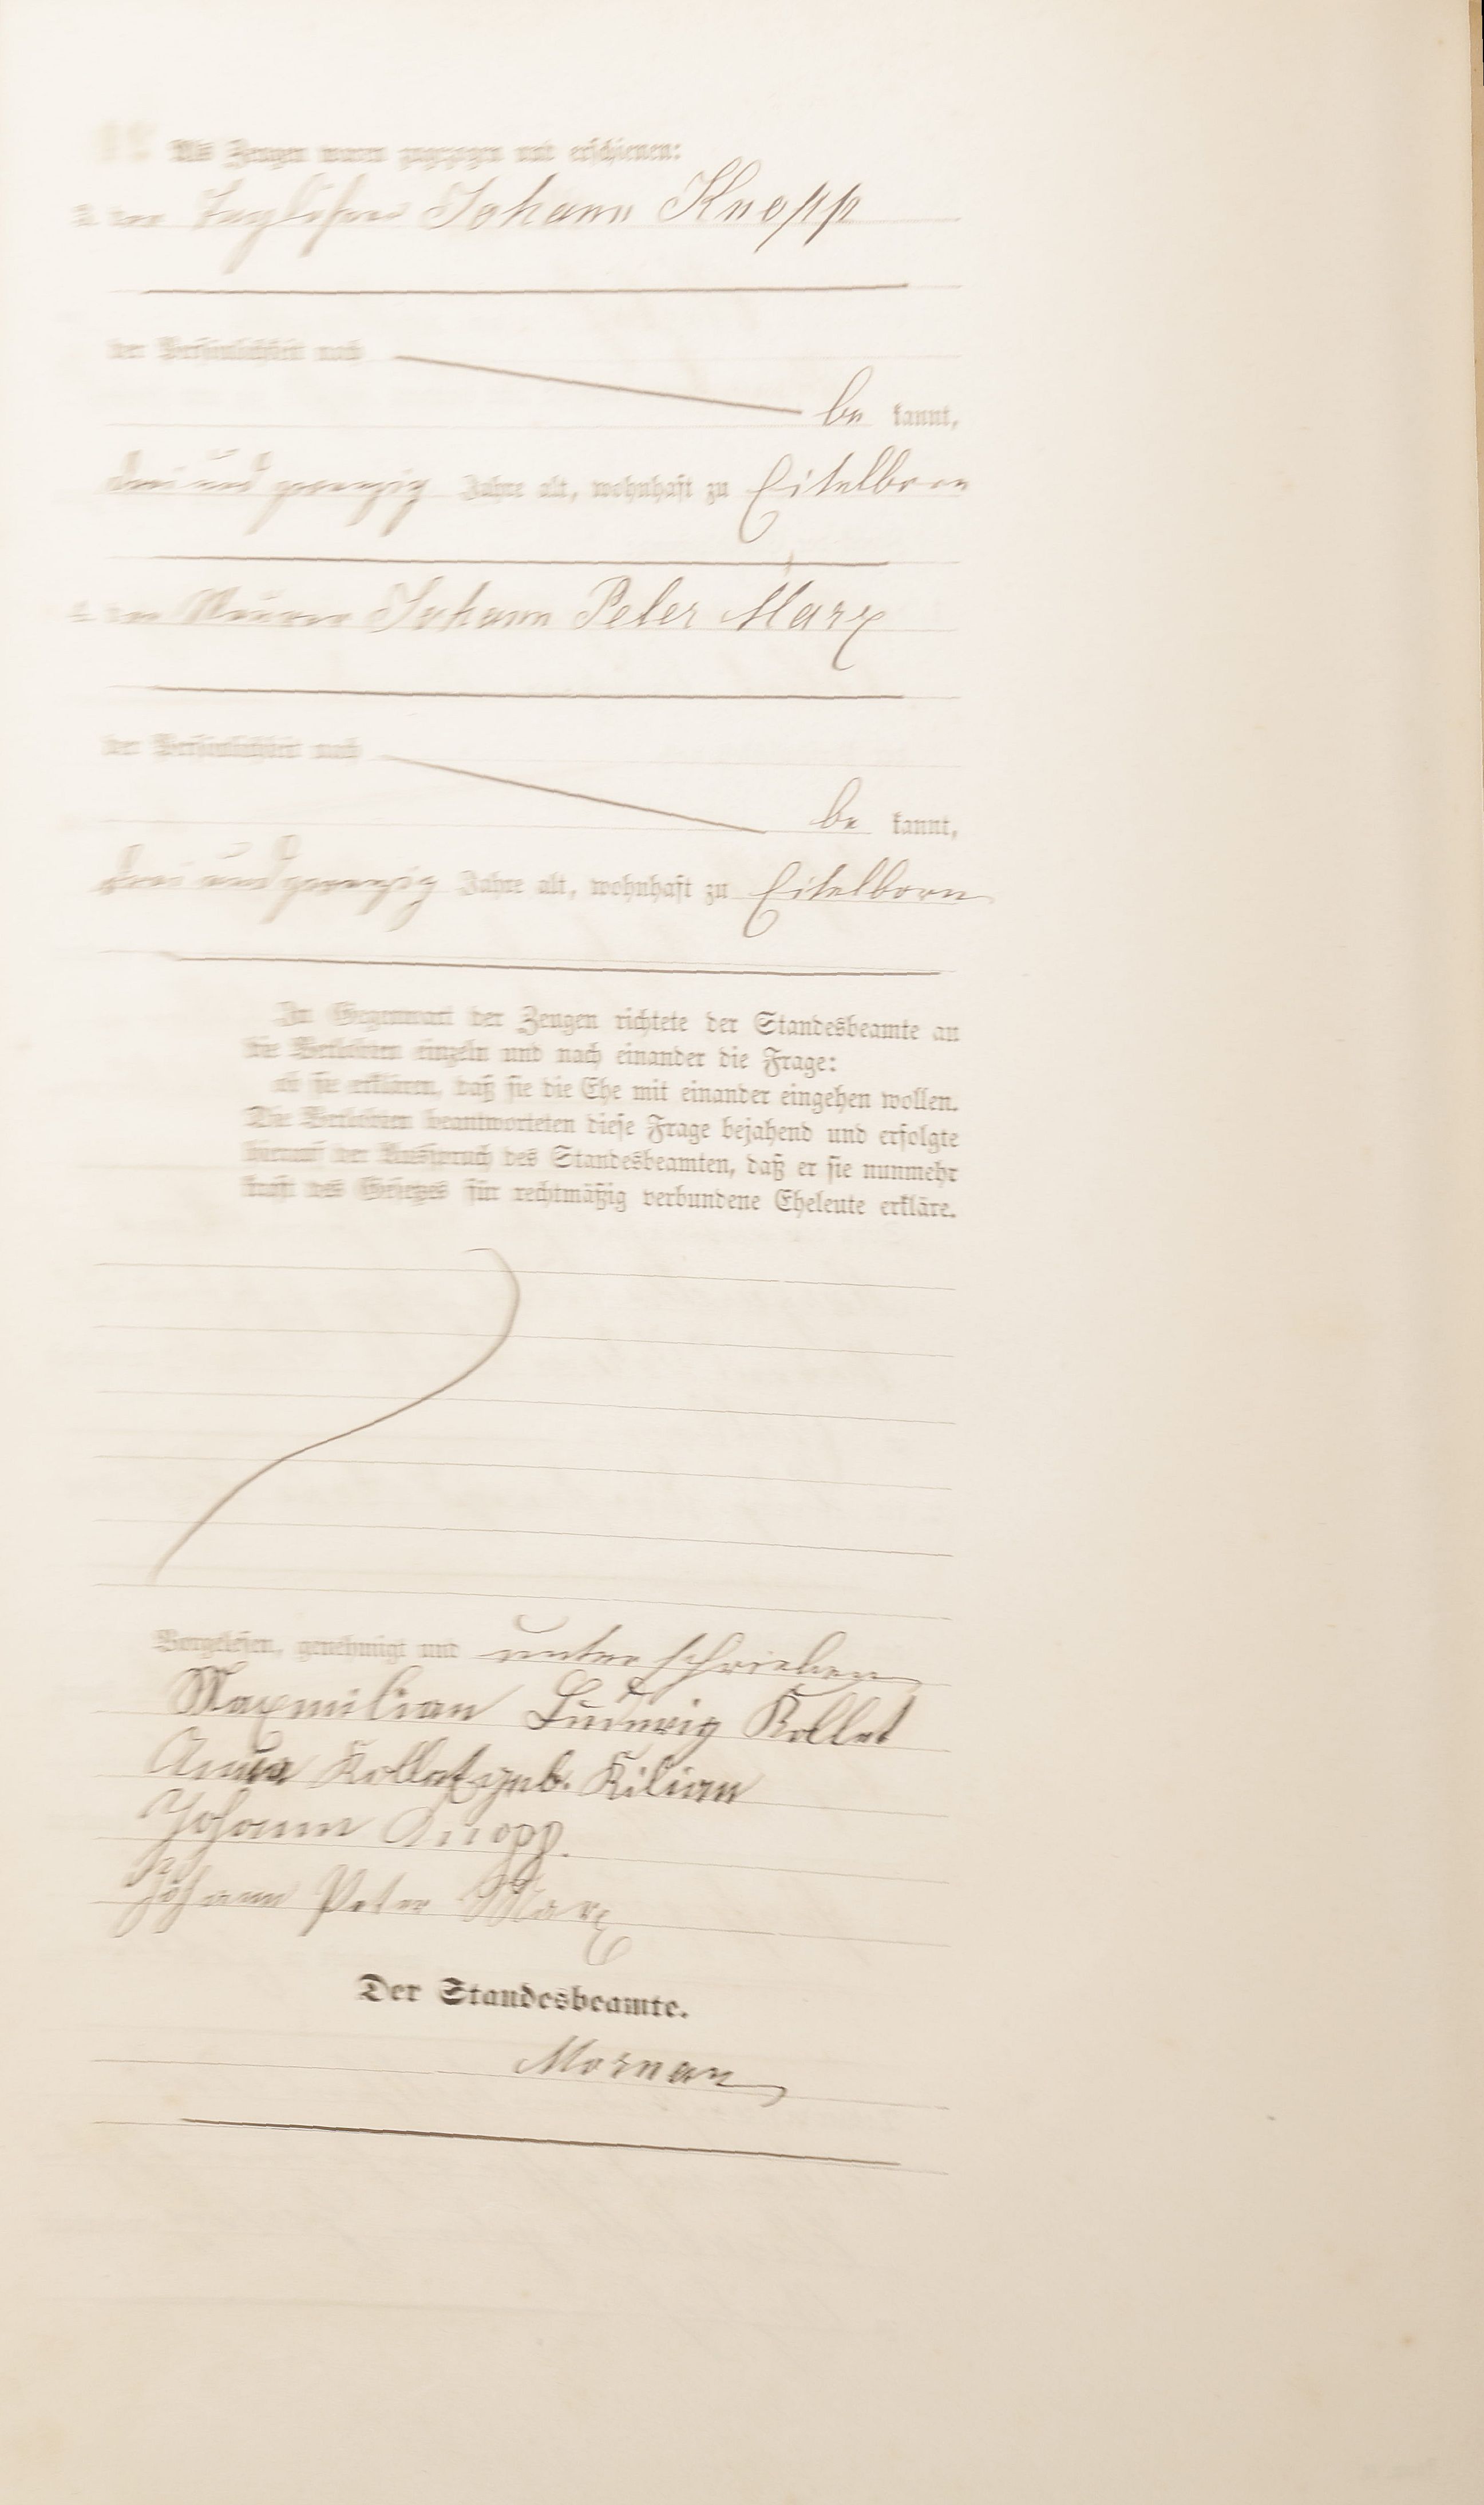 Als Zeugen waren zugezogen und erschienen:
3. der Taglöhner Johann Knopp
der Persönlichkeit nach
be kannt,
drei und zwanzig Jahre alt, wohnhaft zu Eitelborn
4. der Maurer Johann Peter Marx
der Persönlichkeit nach
be kannt,
drei und zwanzig Jahre alt, wohnhaft zu Eitelborn
In Gegenwart der Zeugen richtete der Standesbeamte an
die Verlobten einzeln und nach einander die Frage:
ob sie erklären, daß sie die Ehe mit einander eingehen wollen.
Die Verlobten beantworteten diese Frage bejahend und erfolgte
hierauf der Ausspruch des Standesbeamten, daß er sie nunmehr
kraft des Gesetzes für rechtmäßig verbundene Eheleute erkläre.
Vorgelesen, genehmigt und unterschrieben
Maxmilian Ludwig Kollet
Anna Kollet geb. Kilian
Johann Knopp.
Johann Peter Marx
Der Standesbeamte.